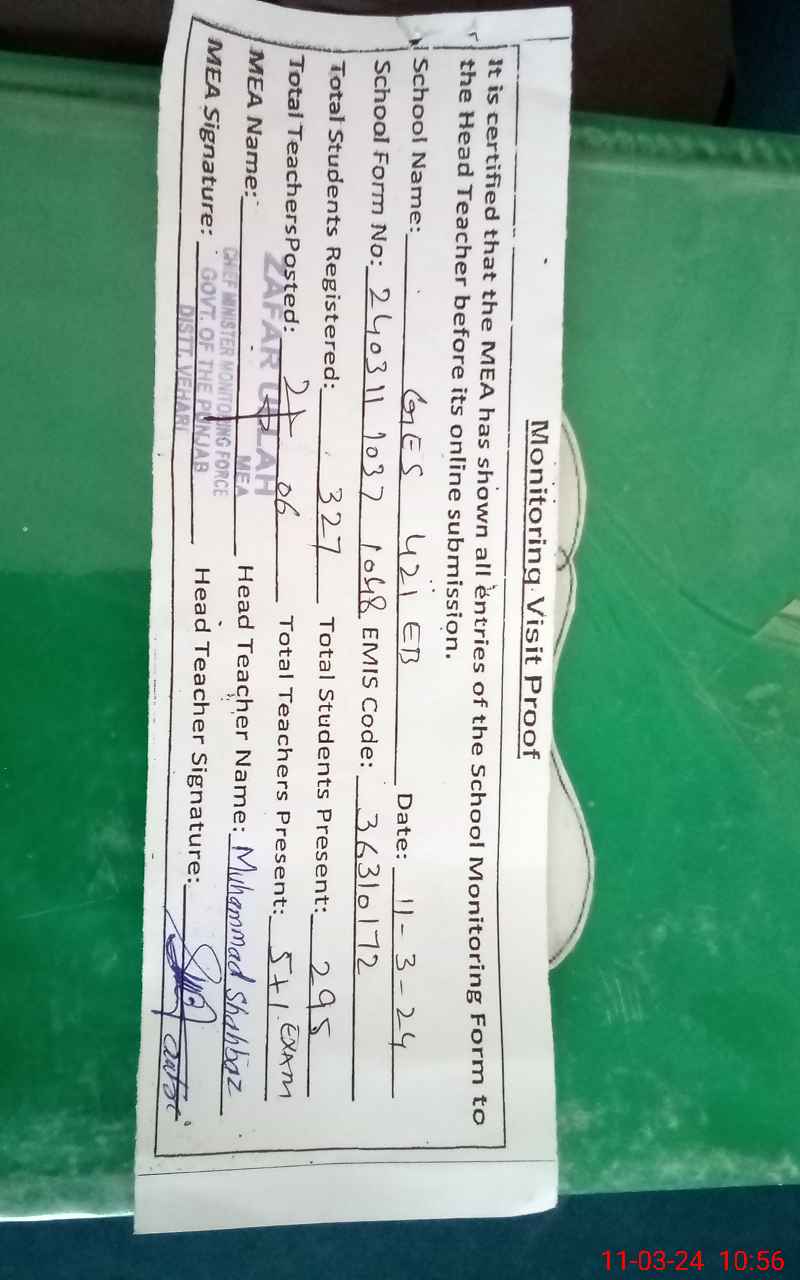 Monitoring Visit Proof
It is certified that the MEA has shown all entries of the School Monitoring Form to
the Head Teacher before its online submission.
School Name: GES 421 EB Date: 11-3-24
School Form No: 240311 1037 1048 EMIS Code: 36310172
Total Students Registered: 327 Total Students Present: 295
Total Teachers Posted: 06 Total Teachers Present: 5+1 EXAM
ZAFAR ULLAH
MEA Name: MEA Head Teacher Name: Muhammad Shahbaz
CHIEF MINISTER MONITORING FORCE
MEA Signature: GOVT. OF THE PUNJAB Head Teacher Signature:
DISTT. VEHARI
11-03-24 10:56